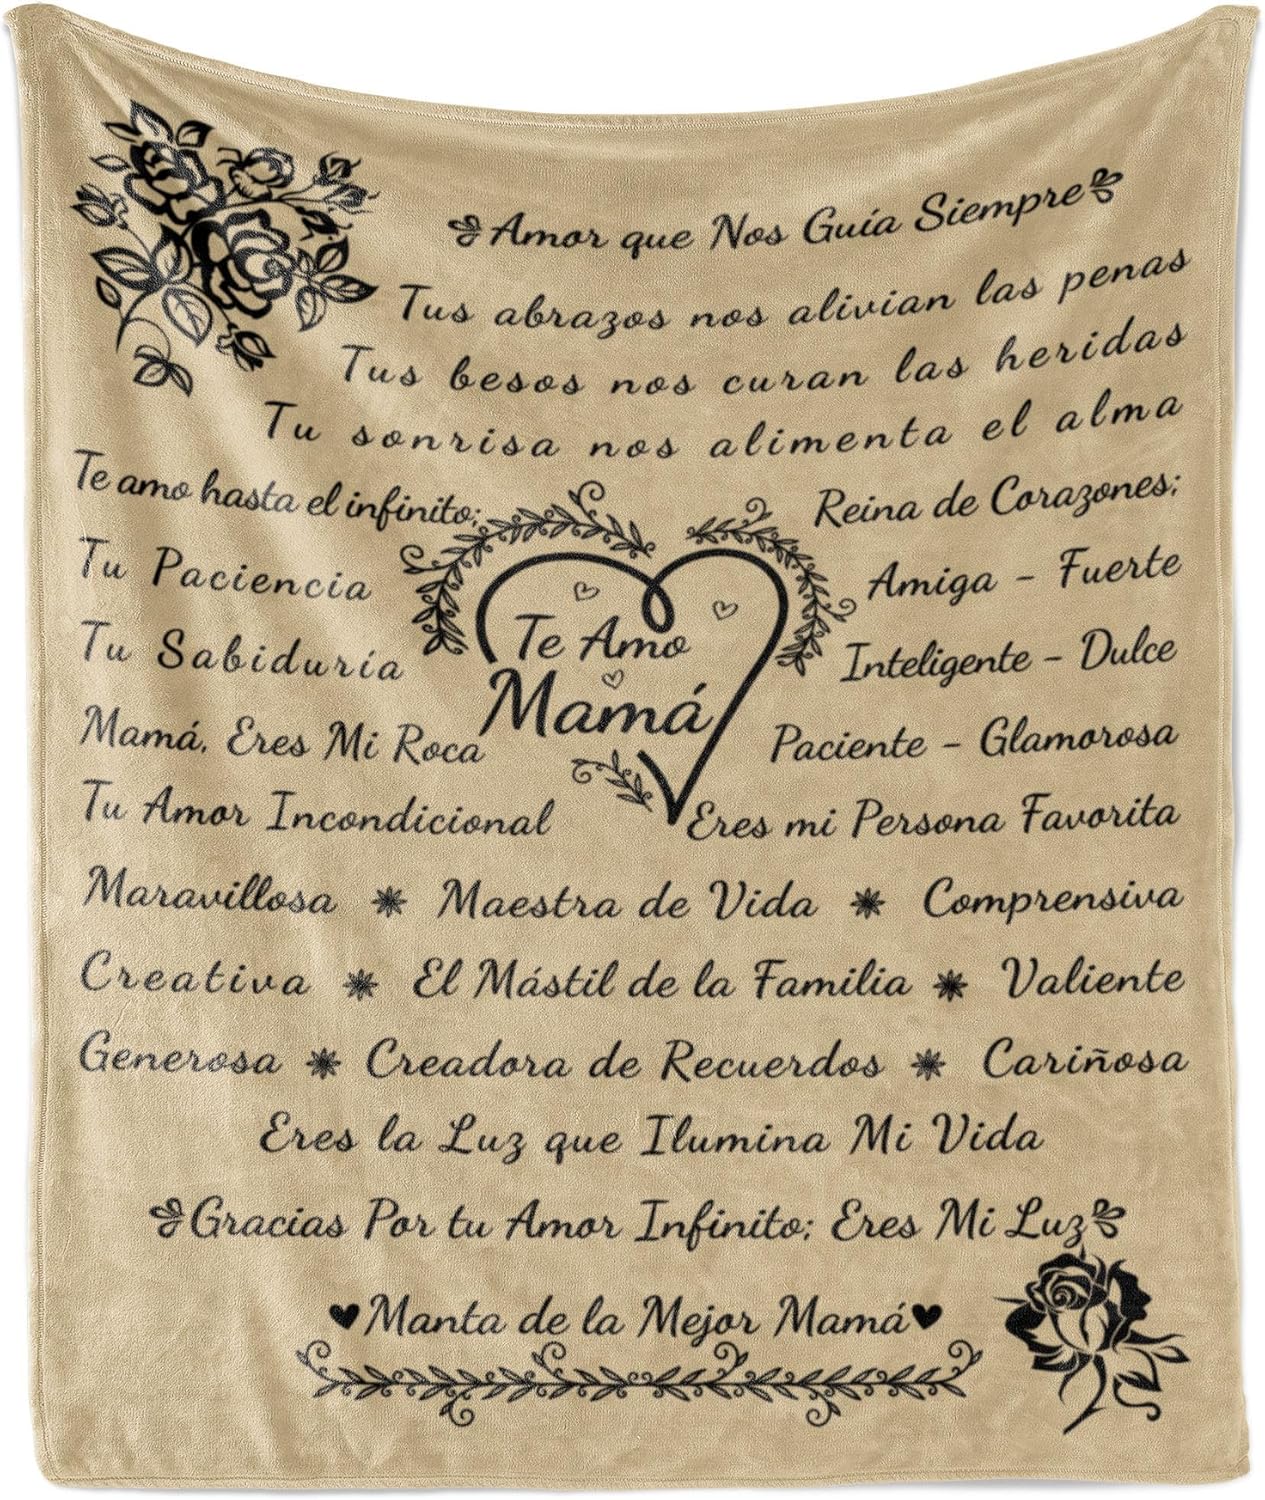 Amor que Nos Guía Siempre
Tus abrazos nos alivian las penas
Tus besos nos curan las heridas
Tu sonrisa nos alimenta el alma
Te amo hasta el infinito;
Tu Paciencia
Tu Sabiduría
Mamá, Eres Mi Roca
Tu Amor Incondicional
Te Amo
Mamá
Reina de Corazones;
Amiga - Fuerte
Inteligente - Dulce
Paciente - Glamorosa
Eres mi Persona Favorita
Maravillosa * Maestra de Vida * Comprensiva
Creativa * El Mástil de la Familia * Valiente
Generosa * Creadora de Recuerdos * Cariñosa
Eres la Luz que Ilumina Mi Vida
Gracias Por tu Amor Infinito; Eres Mi Luz
♥Manta de la Mejor Mamá♥